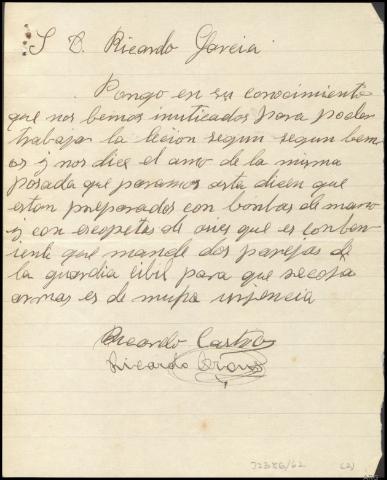 S D. Ricardo Garcia
Pongo en su conocimiento
que nos bemos inuticados para poder
trabajar la licion segun segun bem
os y nos dice el amo de la misma
posada que paramos asta dicen que
estan preparados con bonbas de mano
y con escopetas de aires que es conben
iente que mande dos parejas de
la guardia cibil para que recoja
armas es de mupa urjencia
Ricardo Castro
Ricardo
J2386/62 (2)